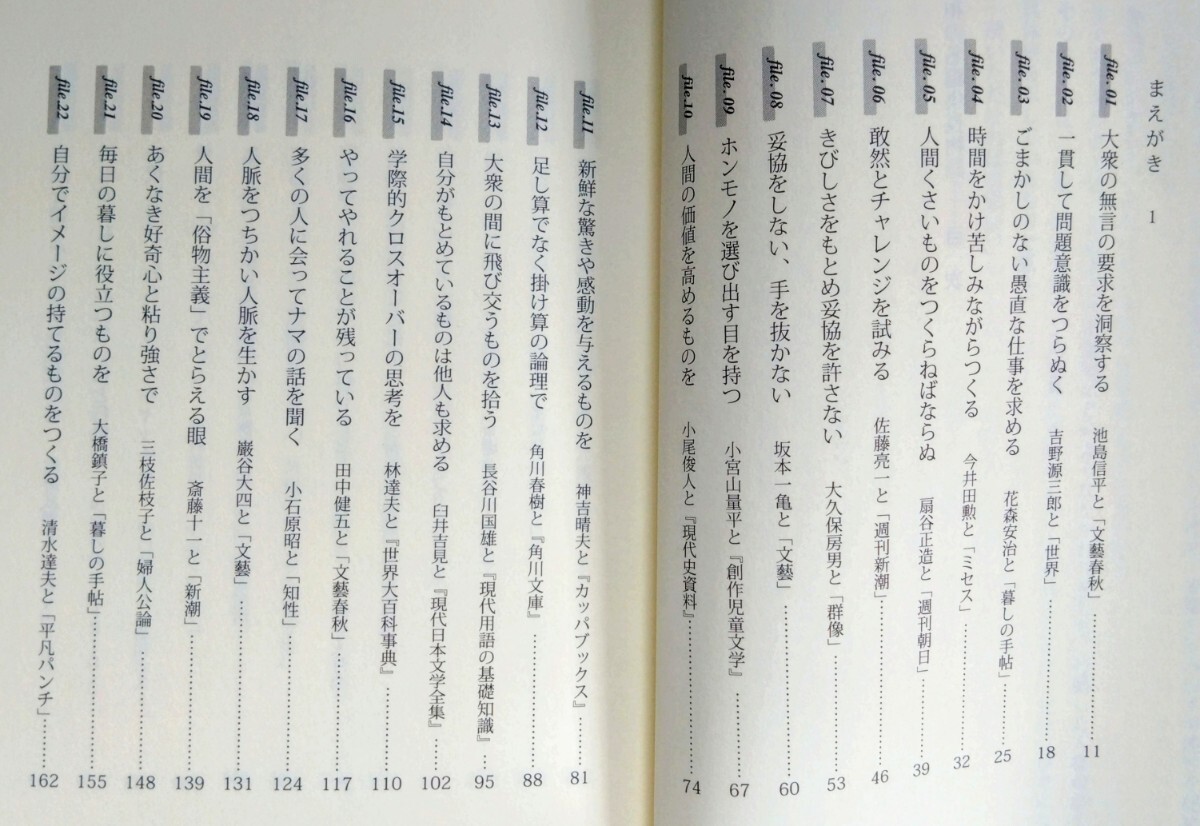 まえがき 1
file.01 大衆の無言の要求を洞察する 池島信平と「文藝春秋」………………11
file.02 一貫して問題意識をつらぬく 吉野源三郎と「世界」………………18
file.03 ごまかしのない愚直な仕事を求める 花森安治と「暮しの手帖」………25
file.04 時間をかけ苦しみながらつくる 今井田勲と「ミセス」………………32
file.05 人間くさいものをつくらねばならぬ 扇谷正造と「週刊朝日」………39
file.06 敢然とチャレンジを試みる 佐藤亮一と「週刊新潮」………………46
file.07 きびしさをもとめ妥協を許さない 大久保房男と「群像」……………53
file.08 妥協をしない、手を抜かない 坂本一亀と「文藝」………………60
file.09 ホンモノを選び出す目を持つ 小宮山量平と『創作児童文学』…………67
file.10 人間の価値を高めるものを 小尾俊人と『現代史資料』………………74
file.11 新鮮な驚きや感動を与えるものを 神吉晴夫と『カッパブックス』………81
file.12 足し算でなく掛け算の論理で 角川春樹と『角川文庫』………………88
file.13 大衆の間に飛び交うものを拾う 長谷川国雄と『現代用語の基礎知識』…95
file.14 自分がもとめているものは他人も求める 臼井吉見と『現代日本文学全集』…102
file.15 学際的クロスオーバーの思考を 林達夫と『世界大百科事典』…………110
file.16 やってやれることが残っている 田中健五と「文藝春秋」……………117
file.17 多くの人に会ってナマの話を聞く 小石原昭と「知性」………………124
file.18 人脈をつちかい人脈を生かす 巌谷大四と「文藝」………………131
file.19 人間を「俗物主義」でとらえる眼 斎藤十一と「新潮」………………139
file.20 あくなき好奇心と粘り強さで 三枝佐枝子と「婦人公論」……………148
file.21 毎日の暮しに役立つものを 大橋鎮子と「暮しの手帖」………………155
file.22 自分でイメージの持てるものをつくる 清水達夫と「平凡パンチ」………162